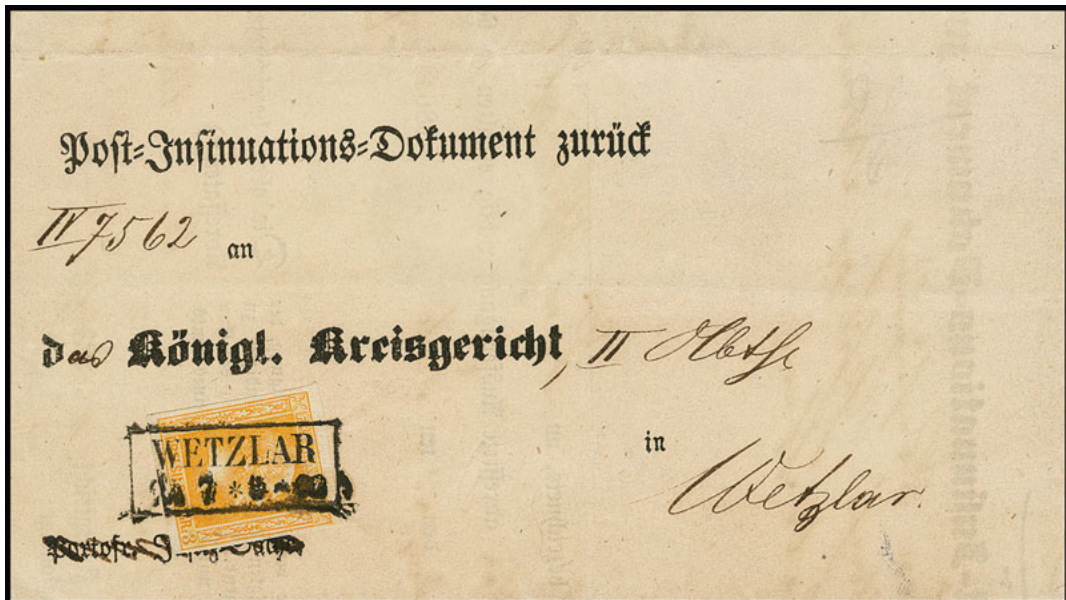 Post-Insinuations-Dokument zurück
IV 7562 an
das Königl. Kreisgericht, II Abth
in
Wetzlar.
WETZLAR
7 *